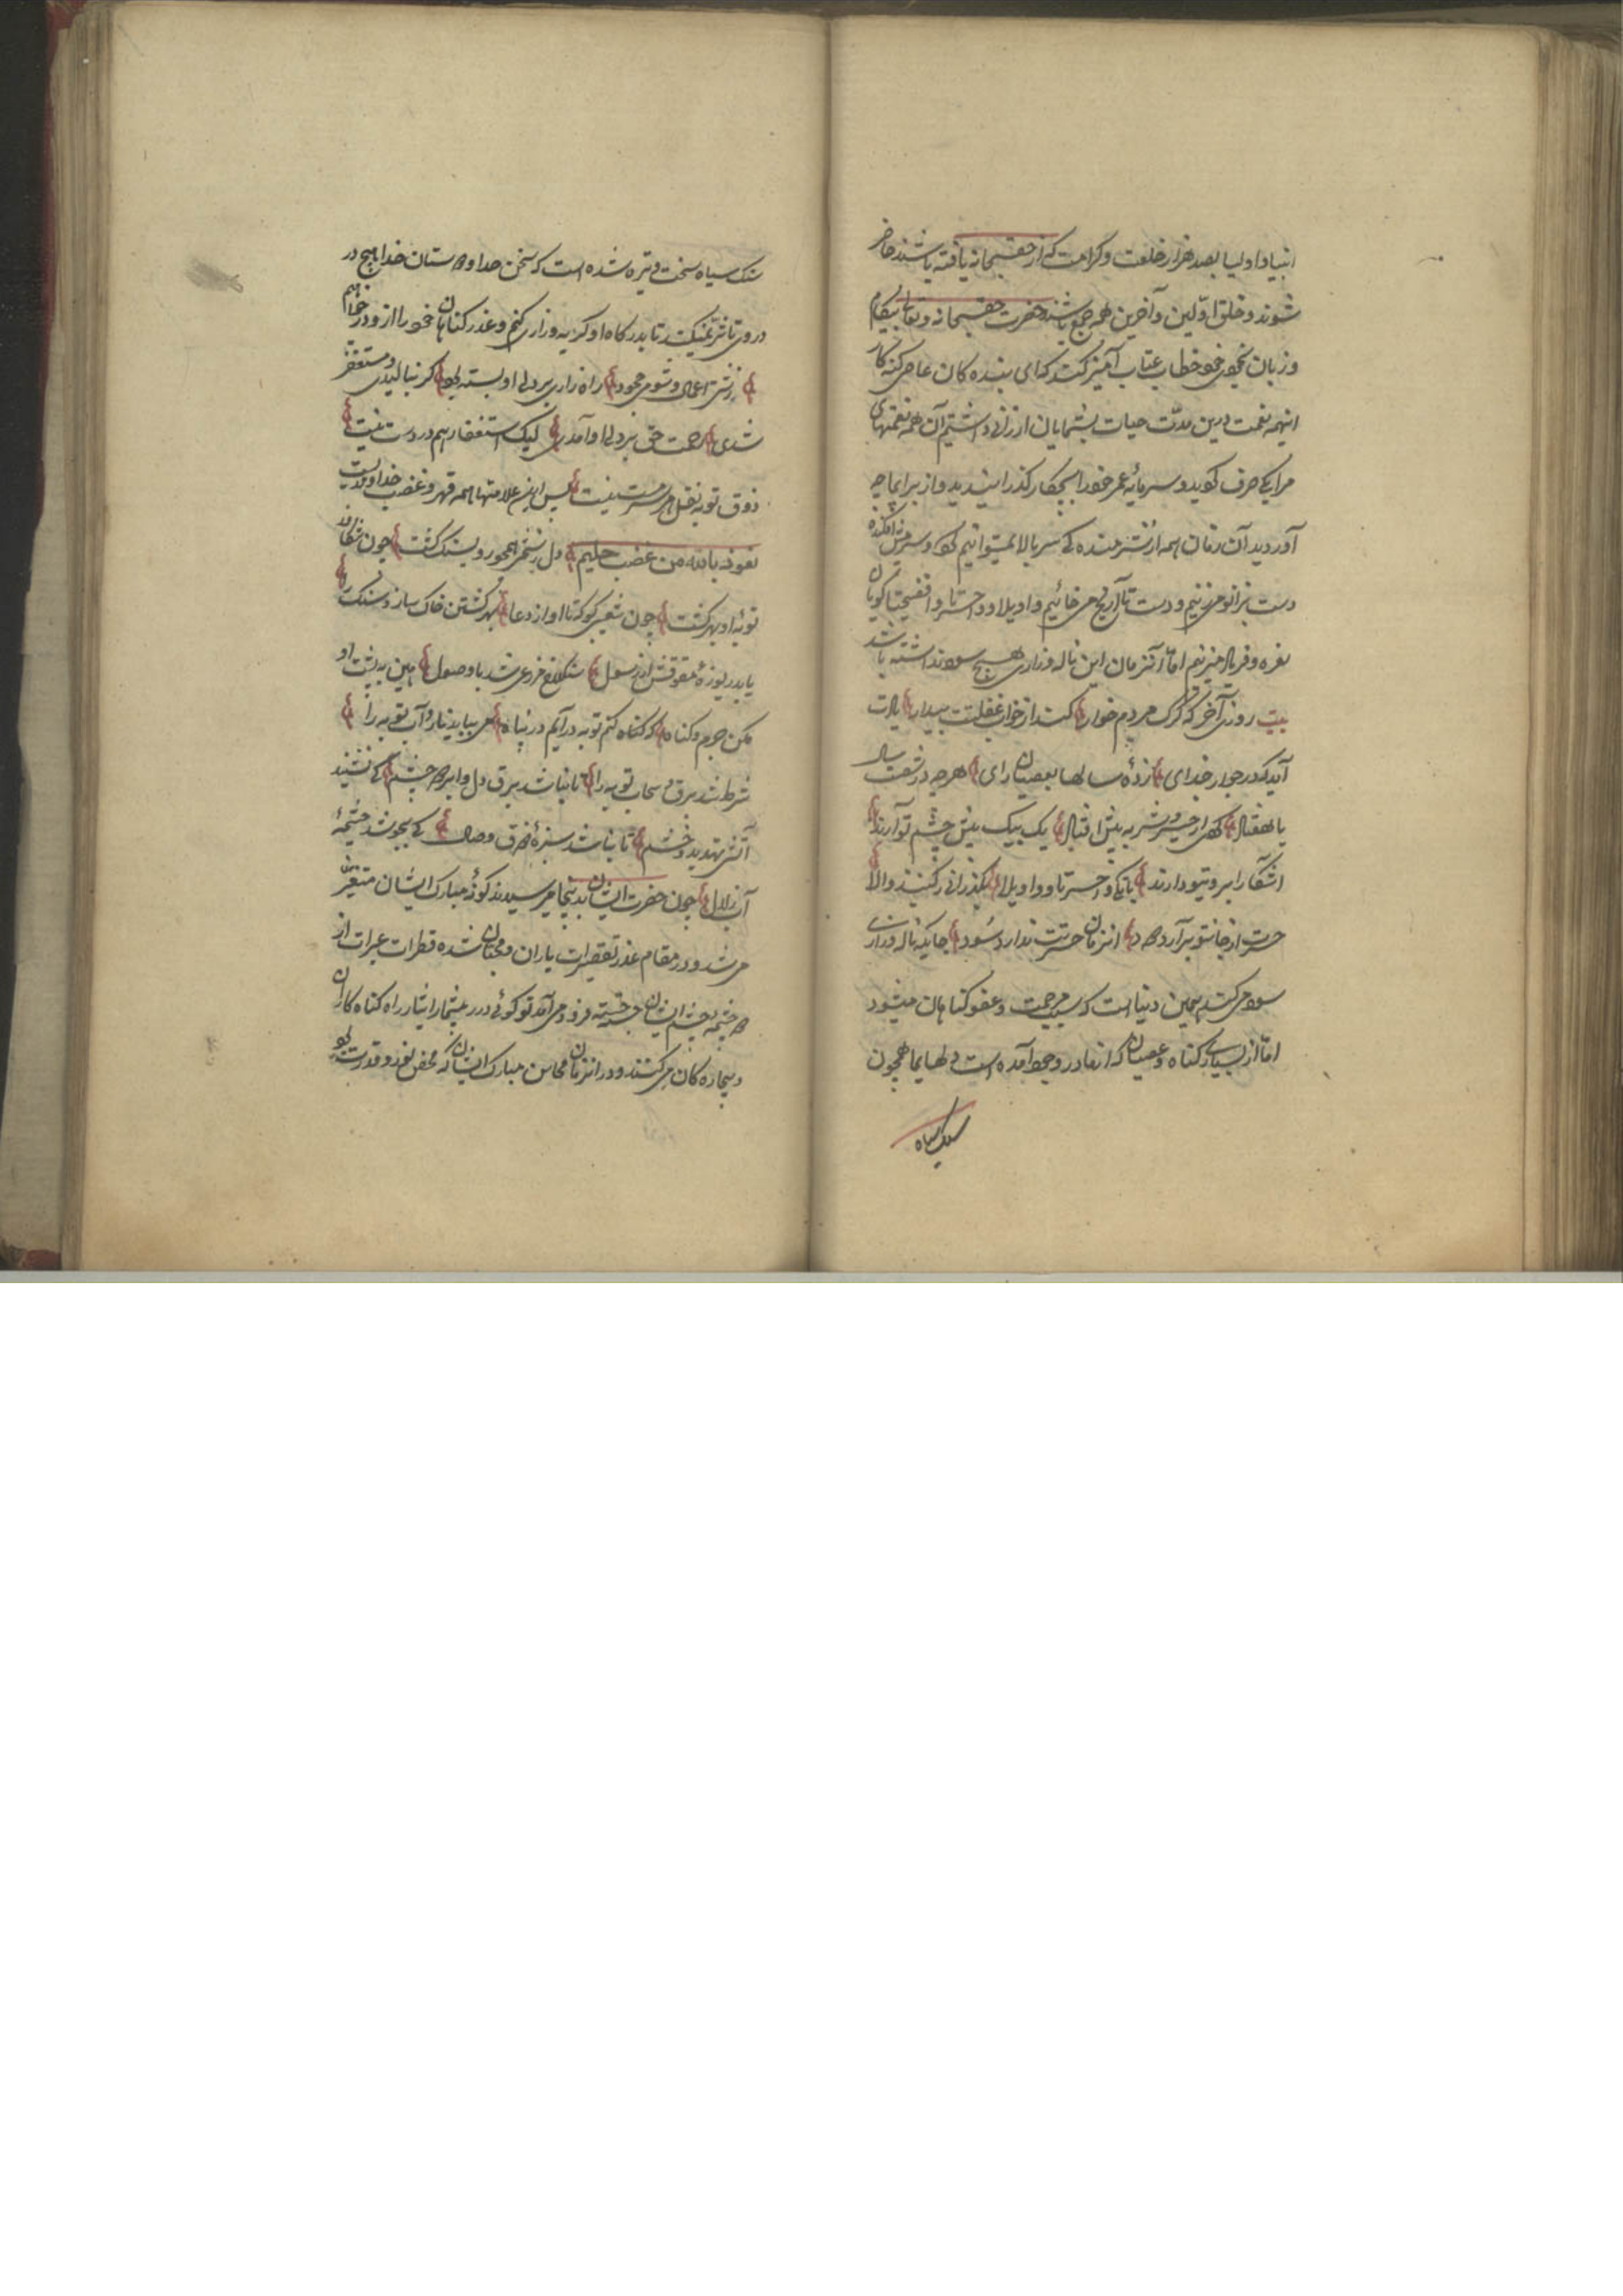 انبیا و اولیا بصد هزار خلعت و کرامت که از حقسبحانه یافته باشند حاضر
شوند و خلق اولین و آخرین همه جمع باشند حضرت حقسبحانه و تعالی
و زبان خطاب عتاب آمیز کند که ای بنده کان عاصی کنه کار
اینهمه نعمت درین مدت حیات بشمایان ارزانی داشتم آن همه نعمتهای
مرا بکی صرف کردید و سرمایه عمر خود را بچکار کذرانیدید و از برای ما چه
آوردید آن زمان همه از شرمنده کی سر بالا نمیتوانیم کرد و سر در پیش افکنده
دست بزانو میزنیم و دست تا آرنج می خائیم و اویلا و واحسرتا و افضیحتا کویان
نعره و فریاد میزنیم اما آنزمان این ناله و زاری هیچ سود نداشته باشد
بیت روزی آخر که کرک مردم خوار کند از خواب غفلت بیدار یادت
آید که در جوار خدای زدۀ سالها بعصیان رای هرچه در شصت سال
یا هفتاد کرده از خیر و شر به پیش افتاد یک بیک پیش چشم تو آرند
آشکارا بروی تو دارند بانک واحسرتا و واویلا بکذرانی ز کنبد والا
حسرت از جان تو برآرد دود آنزمان حسرتت ندارد سود جایکه ناله و زاری
سود می کند همین دنیا است که سبب مرحمت و عفو کناهان میشود
اما از بسیاری کناه و عصیان که از ما در وجود آمده است دلهای ما همچون
سنک سیاه
سنک سیاه سخت و تیره شده است که سخن خدا و دوستان خدا هیچ در
در وی تاثیر نمیکند تا بدرکاه او کریه و زاری کنم و عذر کناهان خود را از و درخواهم
زشتی اعمال و شومی جحود راه زاری بر دل او بسته بود کر بنالیدی و مستغفر
شدی رحمت حق بر دل او آمدی لیک استغفار هم در دست نیست
ذوق توبه نقل هر سرمست نیست پس این علامتها همه قهر و غضب خداوندیست
نعوذ بالله من غضب حلیم دل بسختی همچو روی سنک کشت چون شکافد
توبه او بهر کشت چون شعیبی کو که تا او از دعا بهر کشتن خاک سازد سنک را
یا بدریوزۀ مقوقس از رسول سنکلاخ مزرعی شد با وصول هین به پشت او
مکن جرم و کناه که کناه کنم توبه درآیم در پناه می بباید تاب و آب توبه را
شرط شد برق و سحاب توبه را تا نباشد برق دل و ابر دو چشم کی نشیند
آتش تهدید و خشم تا نباشد سبزۀ ذوق وصال کی بجوشد چشمۀ
آب زلال چون حضرت ایشان بدینجا میرسیدند کونۀ مبارک ایشان متغیر
می شد و در مقام عذر تقصیرات یاران و محبان شده قطرات عبرات از
دو چشمه چشم ایشان جسته جسته فرود می آمد تو کوئی درر بیشمار ایثار راه کناه کاران
و بیچاره کان می کنند و در آنزمان محاسن مبارک ایشان که محض نور و قدرت بود